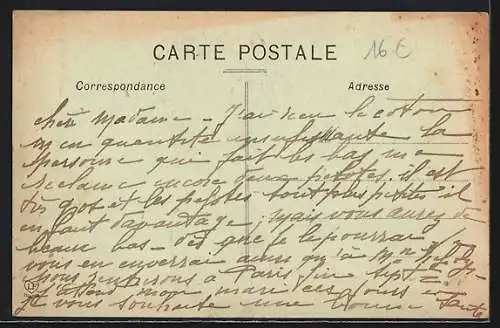 CARTE POSTALE
16 €
Correspondance
Adresse
chère Madame - J'ai reçu le coton
en quantité insuffisante la
personne qui fait les bas me
réclame encore deux pelotes. il est
très gros et les pelotes sont plus petites il
en faut davantage, mais vous aurez de
beaux bas - dès que je le pourrai
vous en enverrai ainsi qu'à Mme
nous rentrerons à Paris fin sept
J'attends mon mari ces jours
Je vous souhaite une bonne santé